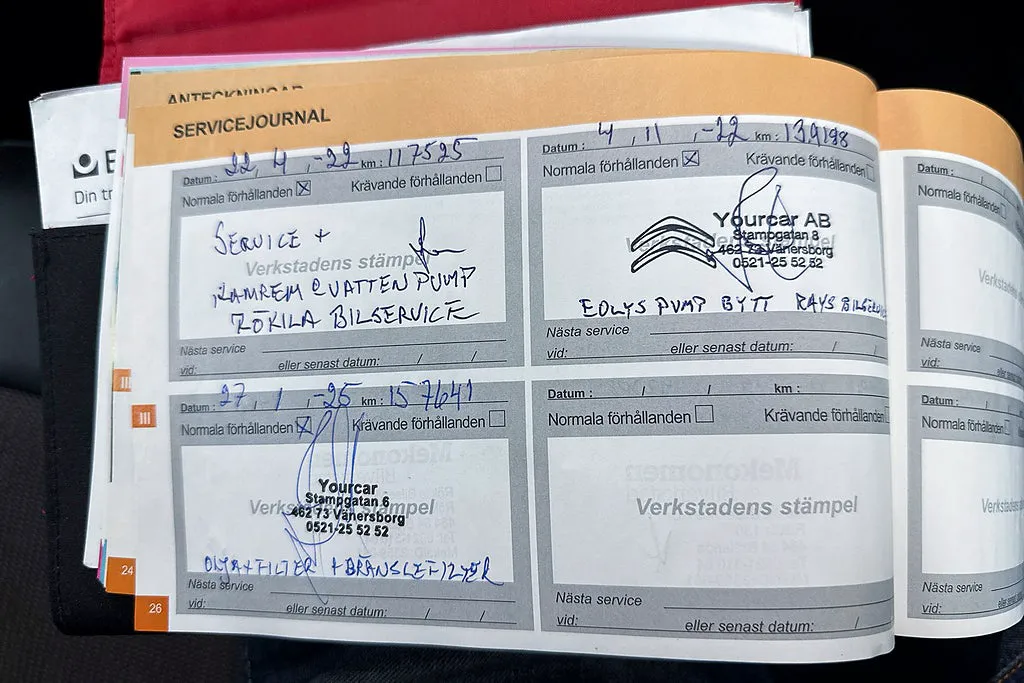 ANTECKNINGAR
SERVICEJOURNAL
Din
Datum : 22, 4, -22 km : 117525
Normala förhållanden Krävande förhållanden
SERVICE +
Verkstadens stämpel
KAMREM & VATTEN PUMP
BILSERVICE
Nästa service
vid: eller senast datum: / /
Datum : 4, 11, -22 km : 139198
Normala förhållanden Krävande förhållanden
Yourcar AB
Stampgatan 8
Verkstadens stämpel
462 73 Vänersborg
0521-25 52 52
EOLYS PUMP BYTT RAYS
Nästa service
vid: eller senast datum: / /
Datum : 27, 1, -25 km : 157641
Normala förhållanden Krävande förhållanden
Yourcar
Stampgatan 6
Verkstadens stämpel
462 73 Vänersborg
0521-25 52 52
OLJA+FILTER +BRÄNSLEFILTER
Nästa service
vid: eller senast datum: / /
Datum : / / km :
Normala förhållanden Krävande förhållanden
Mekonomen
Verkstadens stämpel
Nästa service
vid: eller senast datum: / /
Datum : /
Normala förhållanden
Nästa service
vid:
Datum : /
Normala förhållanden
Nästa service
vid:
III
III
24
26